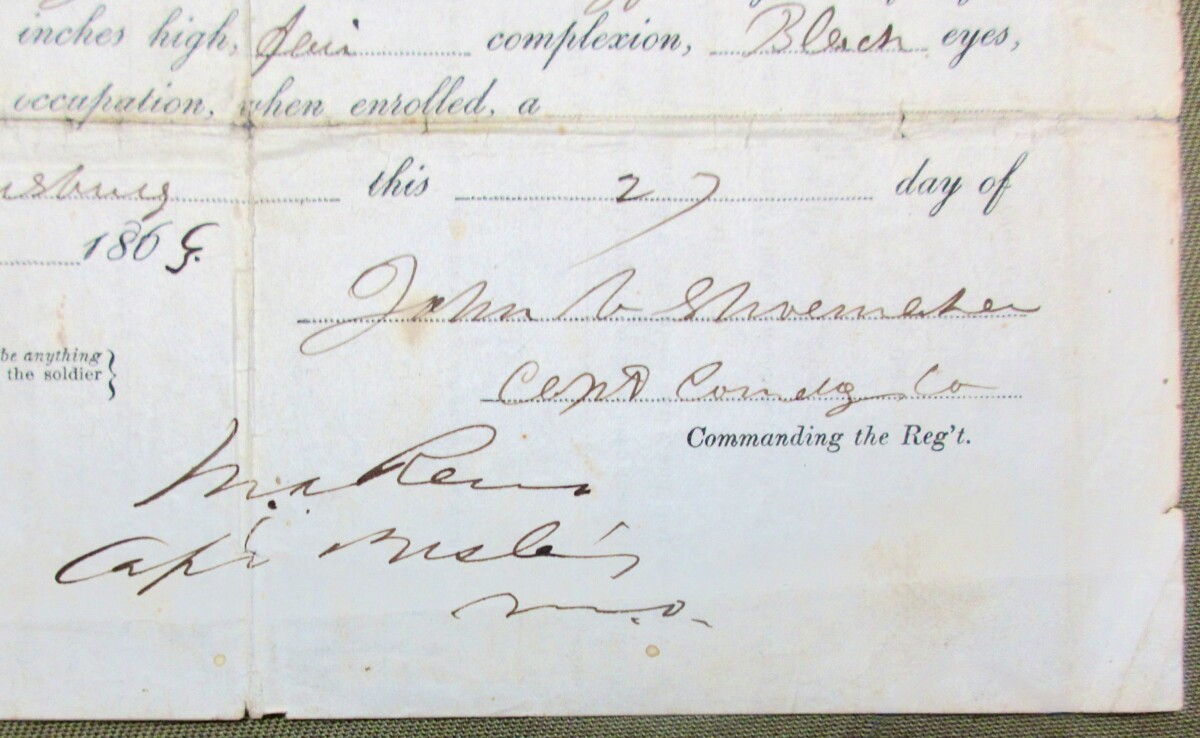 inches high, fair complexion, Black eyes,
occupation, when enrolled, a
this 27 day of
1865.
be anything
the soldier}
John V Shoemaker
Capt Comdg Co
Commanding the Reg't.
M. A. Reno
Capt
M.O.